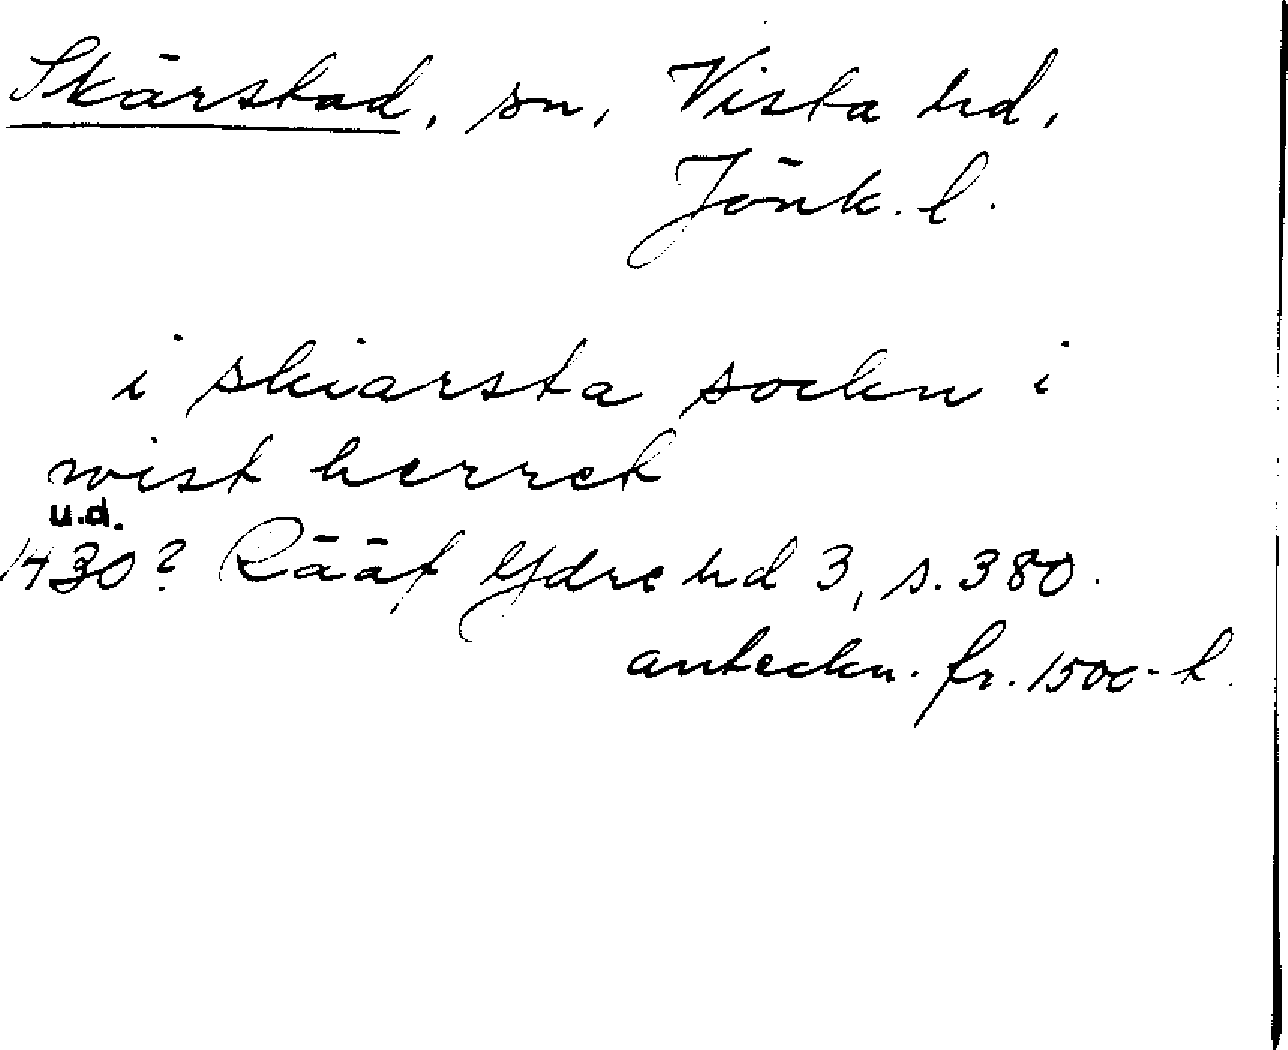 Skärstad, sn, Vista hd,
Jönk. l.
i skiarsta sockn i
wist herret
u.d.
1430? Rääf Ydre hd 3, s. 380.
anteckn. fr. 1500-t.